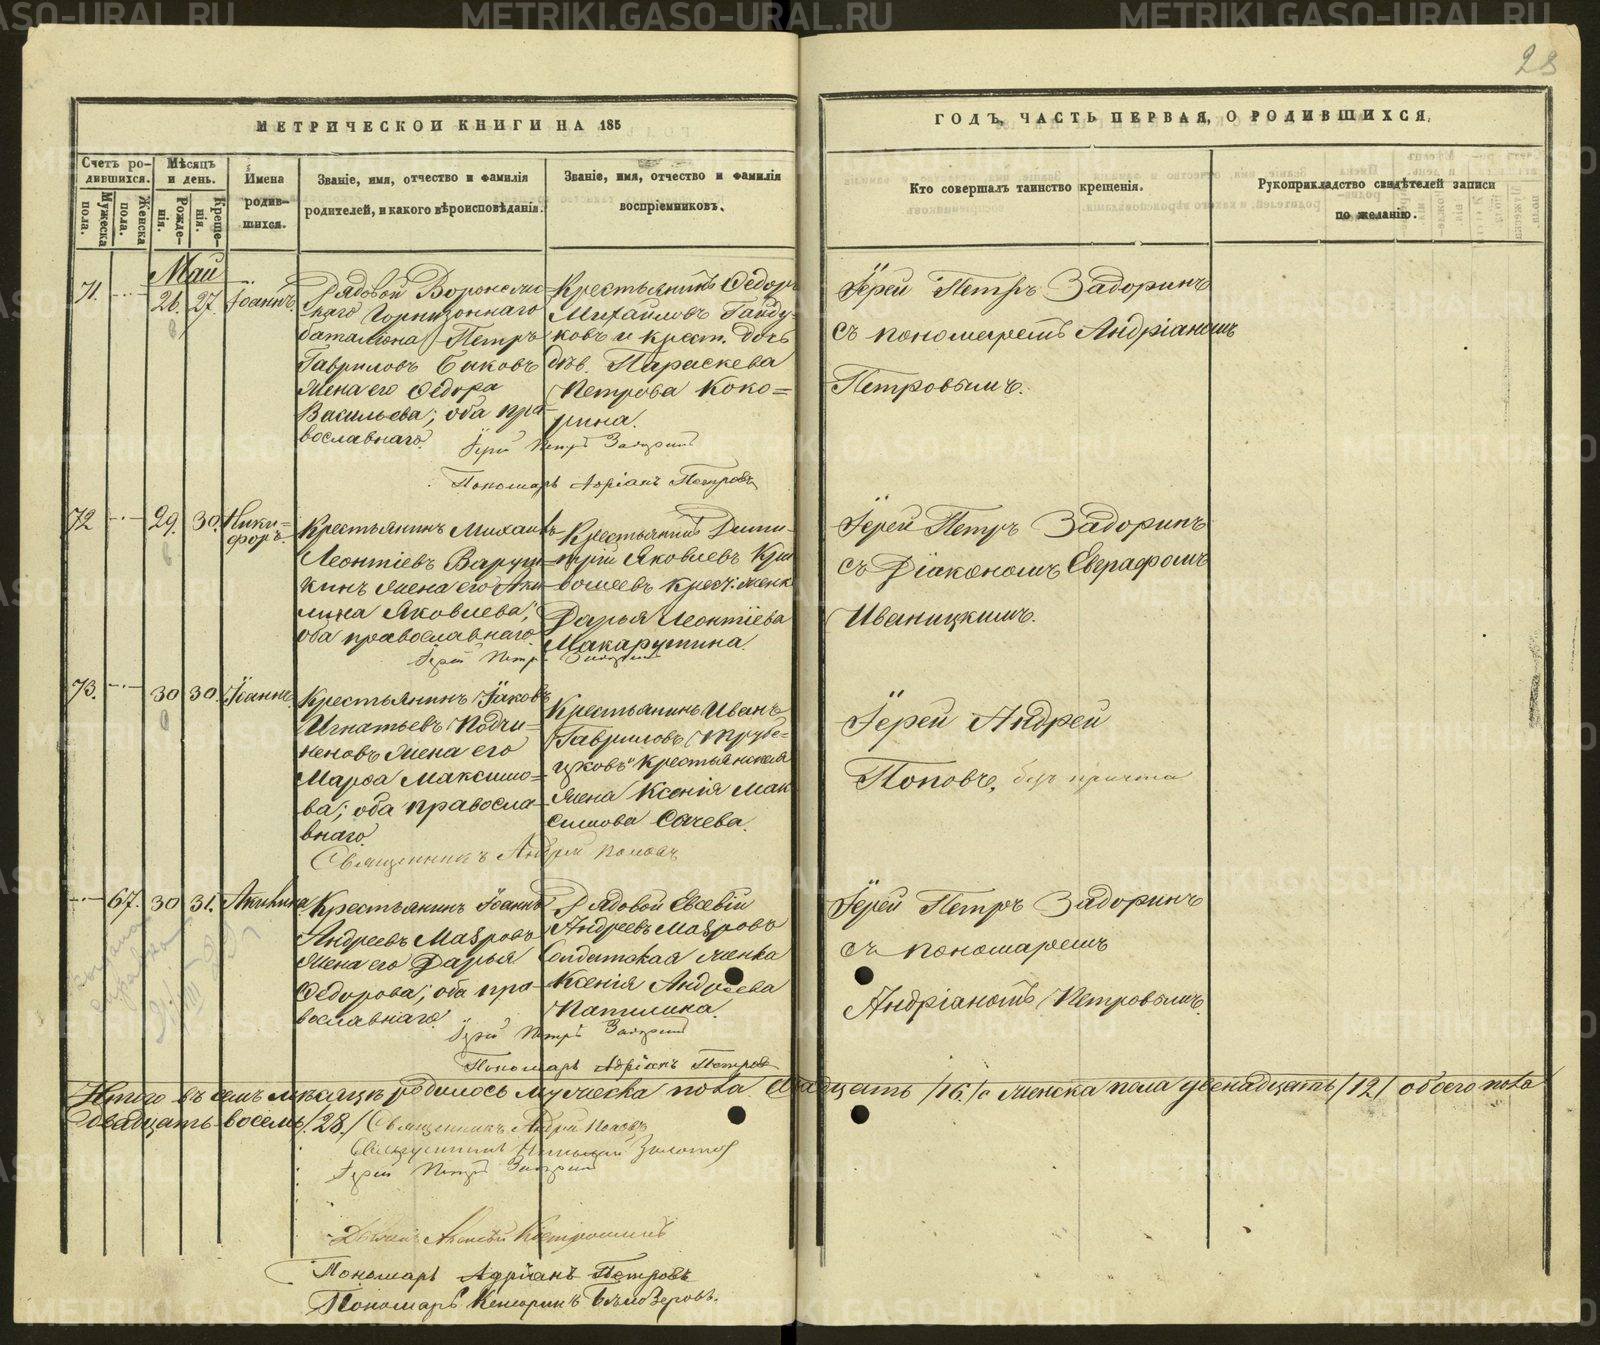 METRIKI.GASO-URAL.RU
28
МЕТРИЧЕСКОЙ КНИГИ НА 185
Счетъ родившихся.
Мужеска пола.
Женска пола.
Мѣсяцъ и день.
Рожденія.
Крещенія.
Имена родившихся.
Званіе, имя, отчество и фамилія
родителей, и какого вѣроисповѣданія.
Званіе, имя, отчество и фамилія
воспріемниковъ.
ГОДЪ, ЧАСТЬ ПЕРВАЯ, О РОДИВШИХСЯ.
Кто совершалъ таинство крещенія.
Рукоприкладство свидѣтелей записи
по желанію.
Май
71.
26. 27.
Іоаннъ.
Рядовой
баталіона Петръ
Гавриловъ Быковъ
жена его Ѳедора
Васильева; оба пра-
вославнаго.
Крестьянинъ Ѳедоръ
Михайловъ Гайду-
ковъ и крест. дочь
дѣв. Параскева
Петрова Коко=
рина.
Іерей Петръ Задоринъ
Пономарь Адріанъ Петровъ
Іерей Петръ Задоринъ
съ пономаремъ Андріаномъ
Петровымъ.
72
29. 30.
Ники=
форъ.
Крестьянинъ Михаилъ
Леонтіевъ
жена его Аки-
лина Яковлева;
оба православнаго.
Крестьянинъ Дими-
трій Яковлевъ Кри
вошеевъ крест. женка
Дарья Леонтіева
Макарушина.
Іерей Петръ Задоринъ
Іерей Петръ Задоринъ
съ Діакономъ Евграфомъ
Иваницкимъ.
73.
30 30.
Іоаннъ.
Крестьянинъ Іаковъ
Игнатьевъ Подчи-
неновъ жена его
Марѳа Максимо=
ва; оба правосла-
внаго.
Крестьянинъ Иванъ
Гавриловъ Трубе-
цковъ Крестьянская
жена Ксенія Мак
симова Сачева.
Священникъ Андрей Поповъ
Іерей Андрей
Поповъ, безъ причта
67.
30 31.
Акилина
Крестьянинъ Іоаннъ
Андреевъ Мавровъ
жена его Дарья
Ѳедорова; оба пра-
вославнаго.
Рядовой Евсевій
Андреевъ Мавровъ
Солдатская женка
Ксенія Андреева
Папилина.
Іерей Петръ Задоринъ
Пономарь Адріанъ Петровъ
Іерей Петръ Задоринъ
съ пономаремъ
Андріаномъ Петровымъ.
Итого въ семъ мѣсяцѣ родилось мужеска пола /16./ женска пола двенадцать /12/ обоего пола
двадцать восемь /28./ Священникъ Андрей Поповъ
Священникъ
Іерей Петръ Задоринъ
Пономарь Адріанъ Петровъ
Пономарь Бѣлозеровъ.